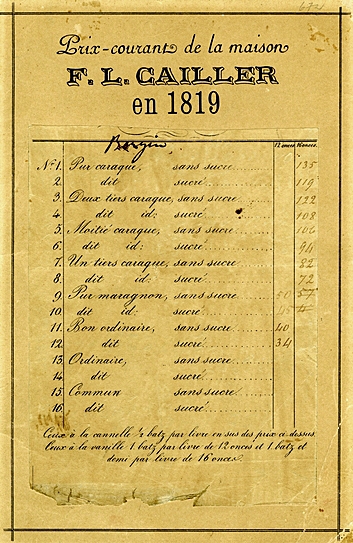 Prix-courant de la maison
F. L. CAILLER
en 1819
12 onces 16 onces
Nº 1. Pur caraque, sans sucre 135
2. dit sucré 119
3. Deux tiers caraque, sans sucre 122
4. dit id: sucré 108
5. Moitié caraque, sans sucre 106
6. dit id: sucré 94
7. Un tiers caraque, sans sucre 82
8. dit id: sucré 72
9. Pur maragnon, sans sucre 50 57
10. dit id: sucré 45
11. Bon ordinaire, sans sucre 40
12. dit sucré 34
13. Ordinaire, sans sucre
14. dit sucré
15. Commun sans sucre
16. dit sucré
Ceux à la cannelle ½ batz par livre en sus des prix ci dessus.
Ceux à la vanille 1 batz par livre de 12 onces et 1 batz et
demi par livre de 16 onces.